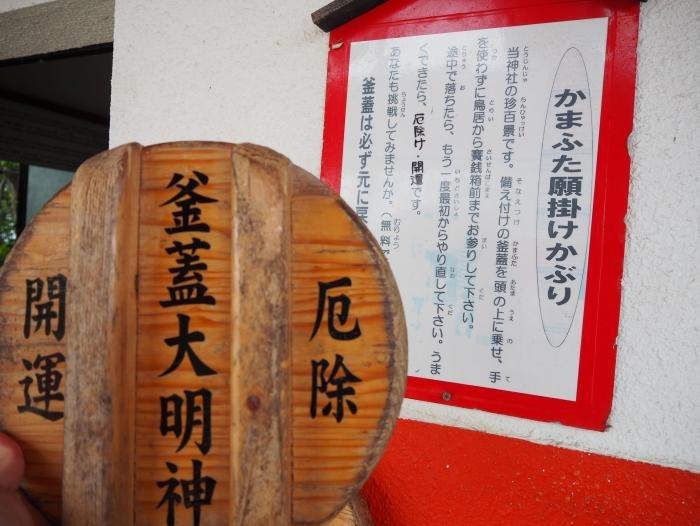 かまふた願掛けかぶり
当神社の珍百景です。備え付けの釜蓋を頭の上に乗せ、手
を使わずに鳥居から賽銭箱前までお参りして下さい。
途中で落ちたら、もう一度最初からやり直して下さい。うま
くできたら、厄除け・開運です。
あなたも挑戦してみませんか。（無料
釜蓋は必ず元に戻
厄除
釜蓋大明神
開運